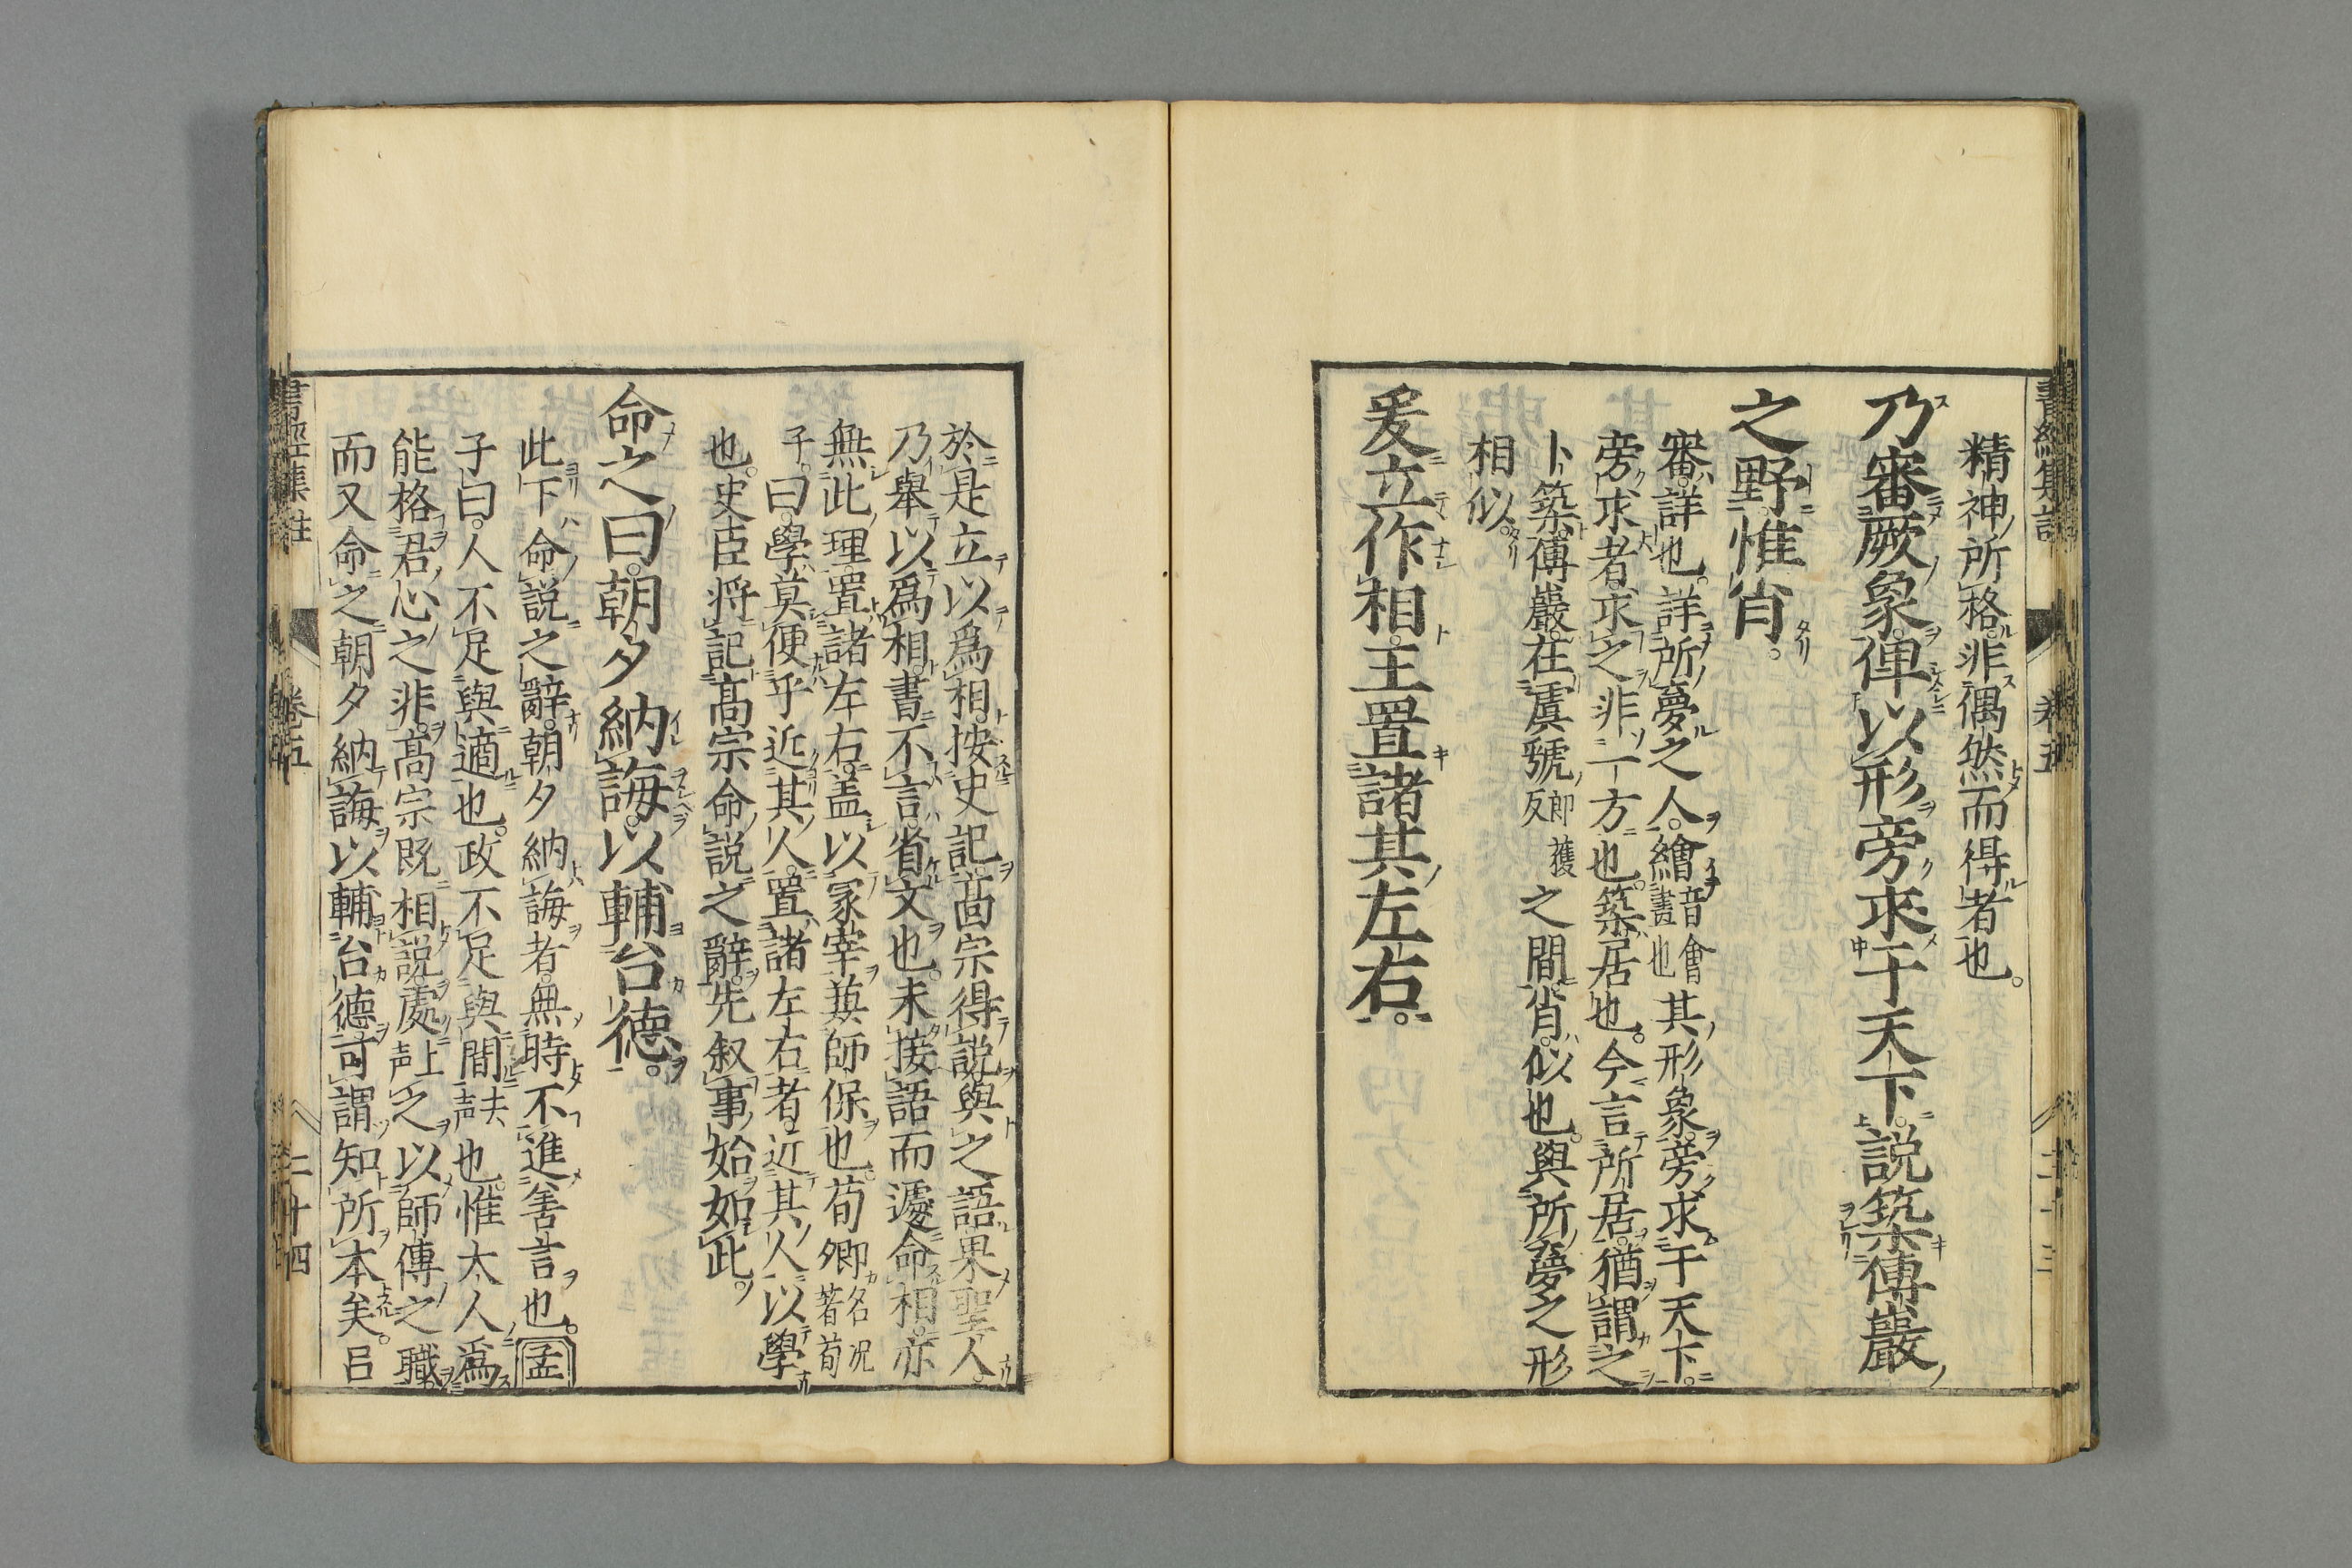 精神所格非偶然而得者也。
乃審厥象。俾以形旁求于天下。説築傅巖
之野。惟肖。
審。詳也。詳所夢之人。繪音會畫也其形象。旁求于天下。
旁求者。求之非一方也。築。居也。今言所居。猶謂之
卜築。傅巖。在虞虢郭獲反之間。肖。似也。與所夢之形
相似。
爰立作相。王置諸其左右。
於是立以爲相。按史記。高宗得説與之語。果聖人。
乃舉以爲相。書不言。省文也。未接語而遽命相。亦
無此理。置諸左右。盖以冢宰兼師保也。荀卿名况著荀
子。曰。學莫便乎近其人。置諸左右者。近其人以學
也。史臣将記高宗命説之辭。先叙事始如此。
命之曰。朝夕納誨。以輔台德。
此下命説之辭。朝夕納誨者。無時不進善言也。孟
子曰。人不足與適也。政不足與間去声也。惟大人爲
能格君心之非。高宗既相説。處上声之以師傅之職。
而又命之朝夕納誨以輔台德。可謂知所本矣。呂
書經集註 卷五 二十四